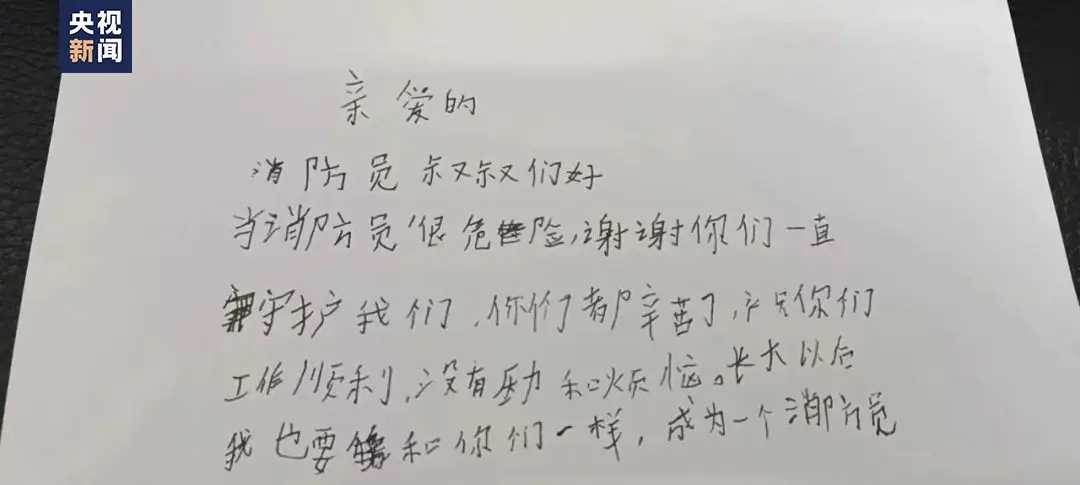 央视
新闻
亲爱的
消防员叔叔们好
当消防员很危险,谢谢你们一直
守护我们,你们都辛苦了,祝你们
工作顺利,没有压力和烦恼。长大以后
我也要和你们一样,成为一个消防员